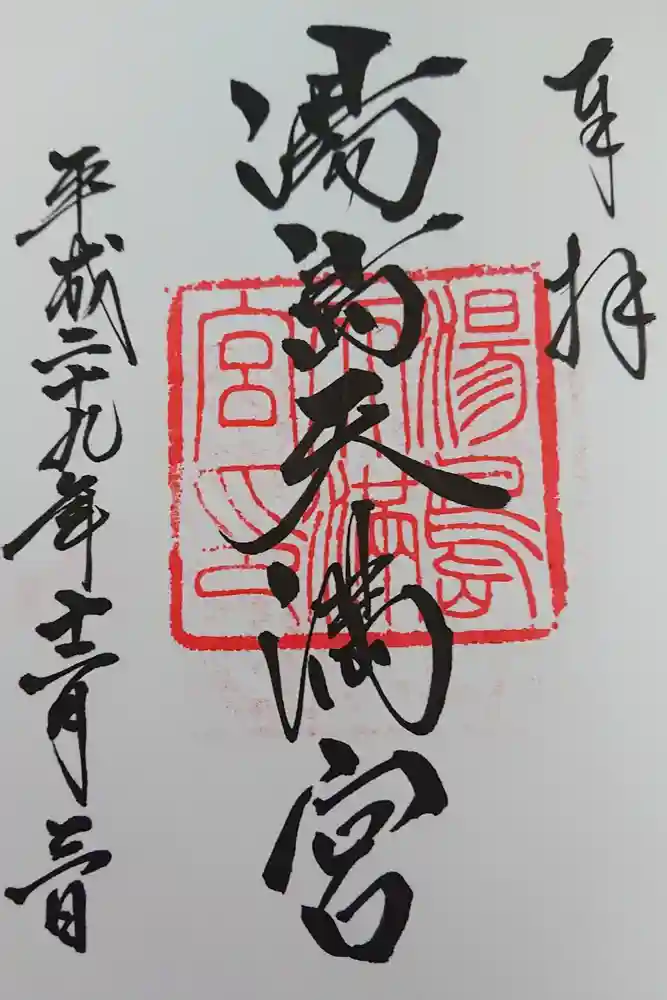 奉拝
湯島天満宮
湯島
天満
宮印
平成二十九年十二月三日